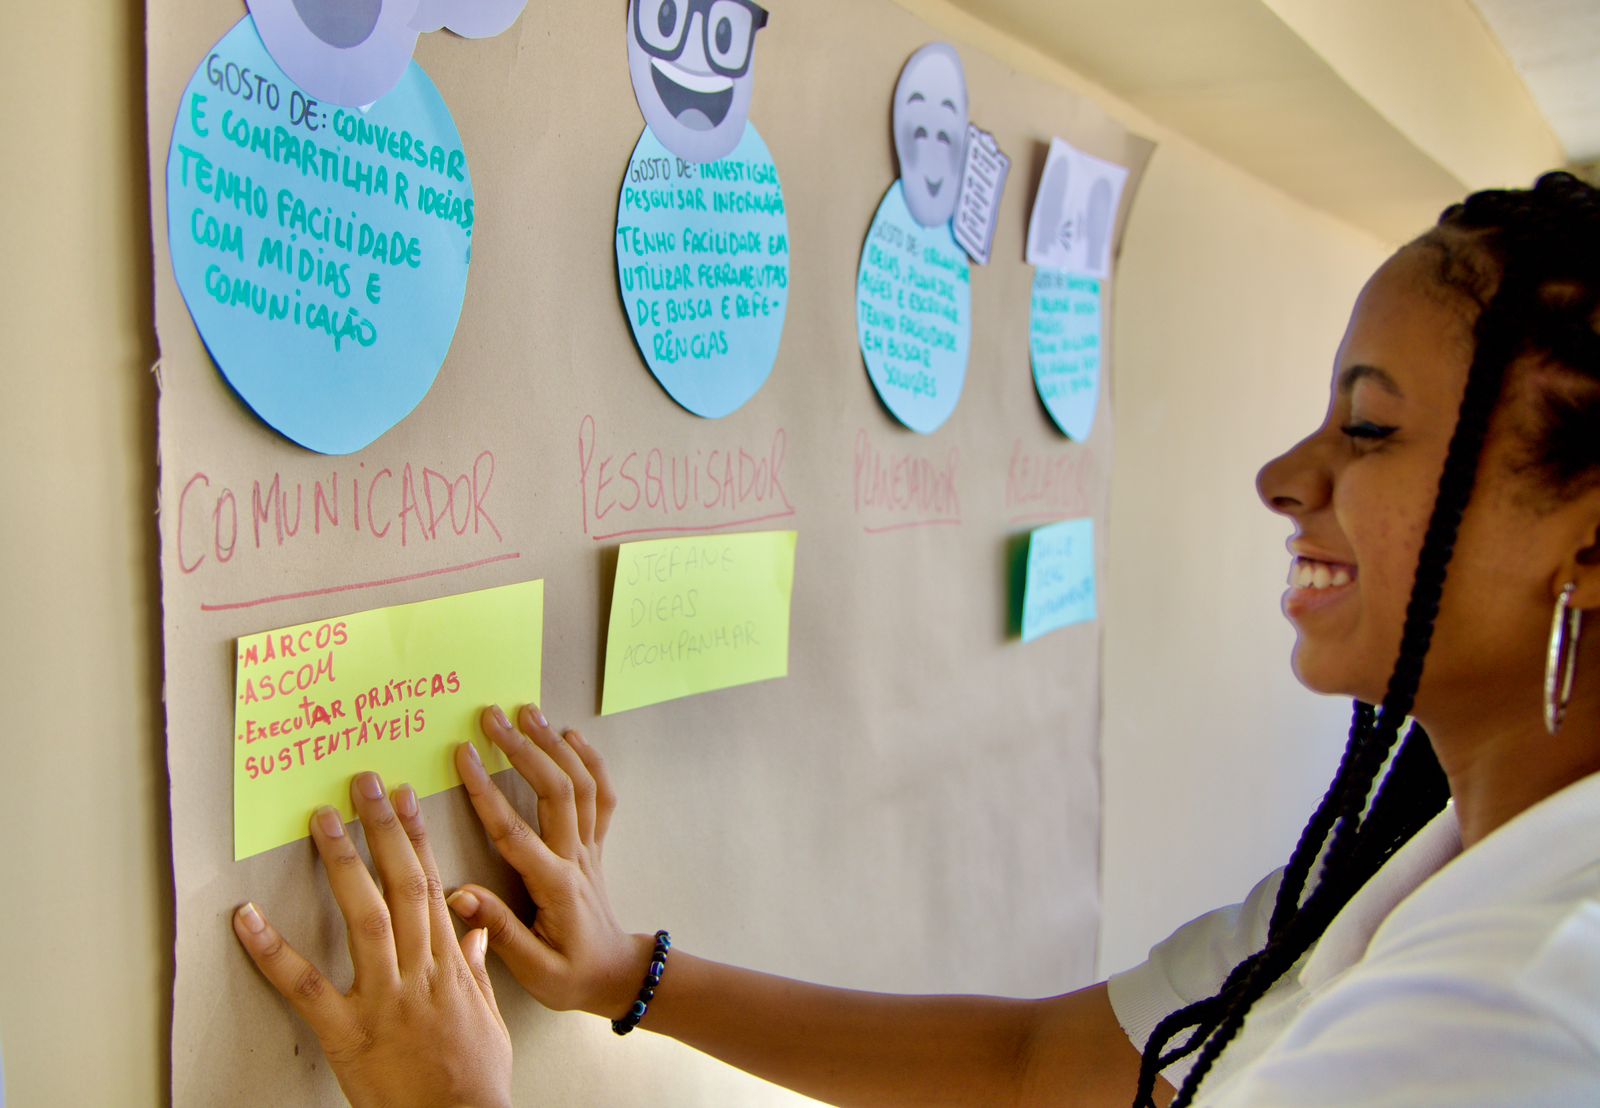 GOSTO DE: CONVERSAR
E COMPARTILHAR IDEIAS
TENHO FACILIDADE
COM MÍDIAS E
COMUNICAÇÃO
COMUNICADOR
·MARCOS
·ASCOM
·EXECUTAR PRÁTICAS
SUSTENTÁVEIS
GOSTO DE: INVESTIGAR,
PESQUISAR INFORMAÇÃO
TENHO FACILIDADE EM
UTILIZAR FERRAMENTAS
DE BUSCA E REFE-
RÊNCIAS
PESQUISADOR
STEFANE
DIEAS
ACOMPANHAR
GOSTO DE:
IDEIAS, PLANEJAR
AÇÕES E
TENHO FACILIDADE
EM BUSCAR
SOLUÇÕES
PLANEJADOR
RELATOR